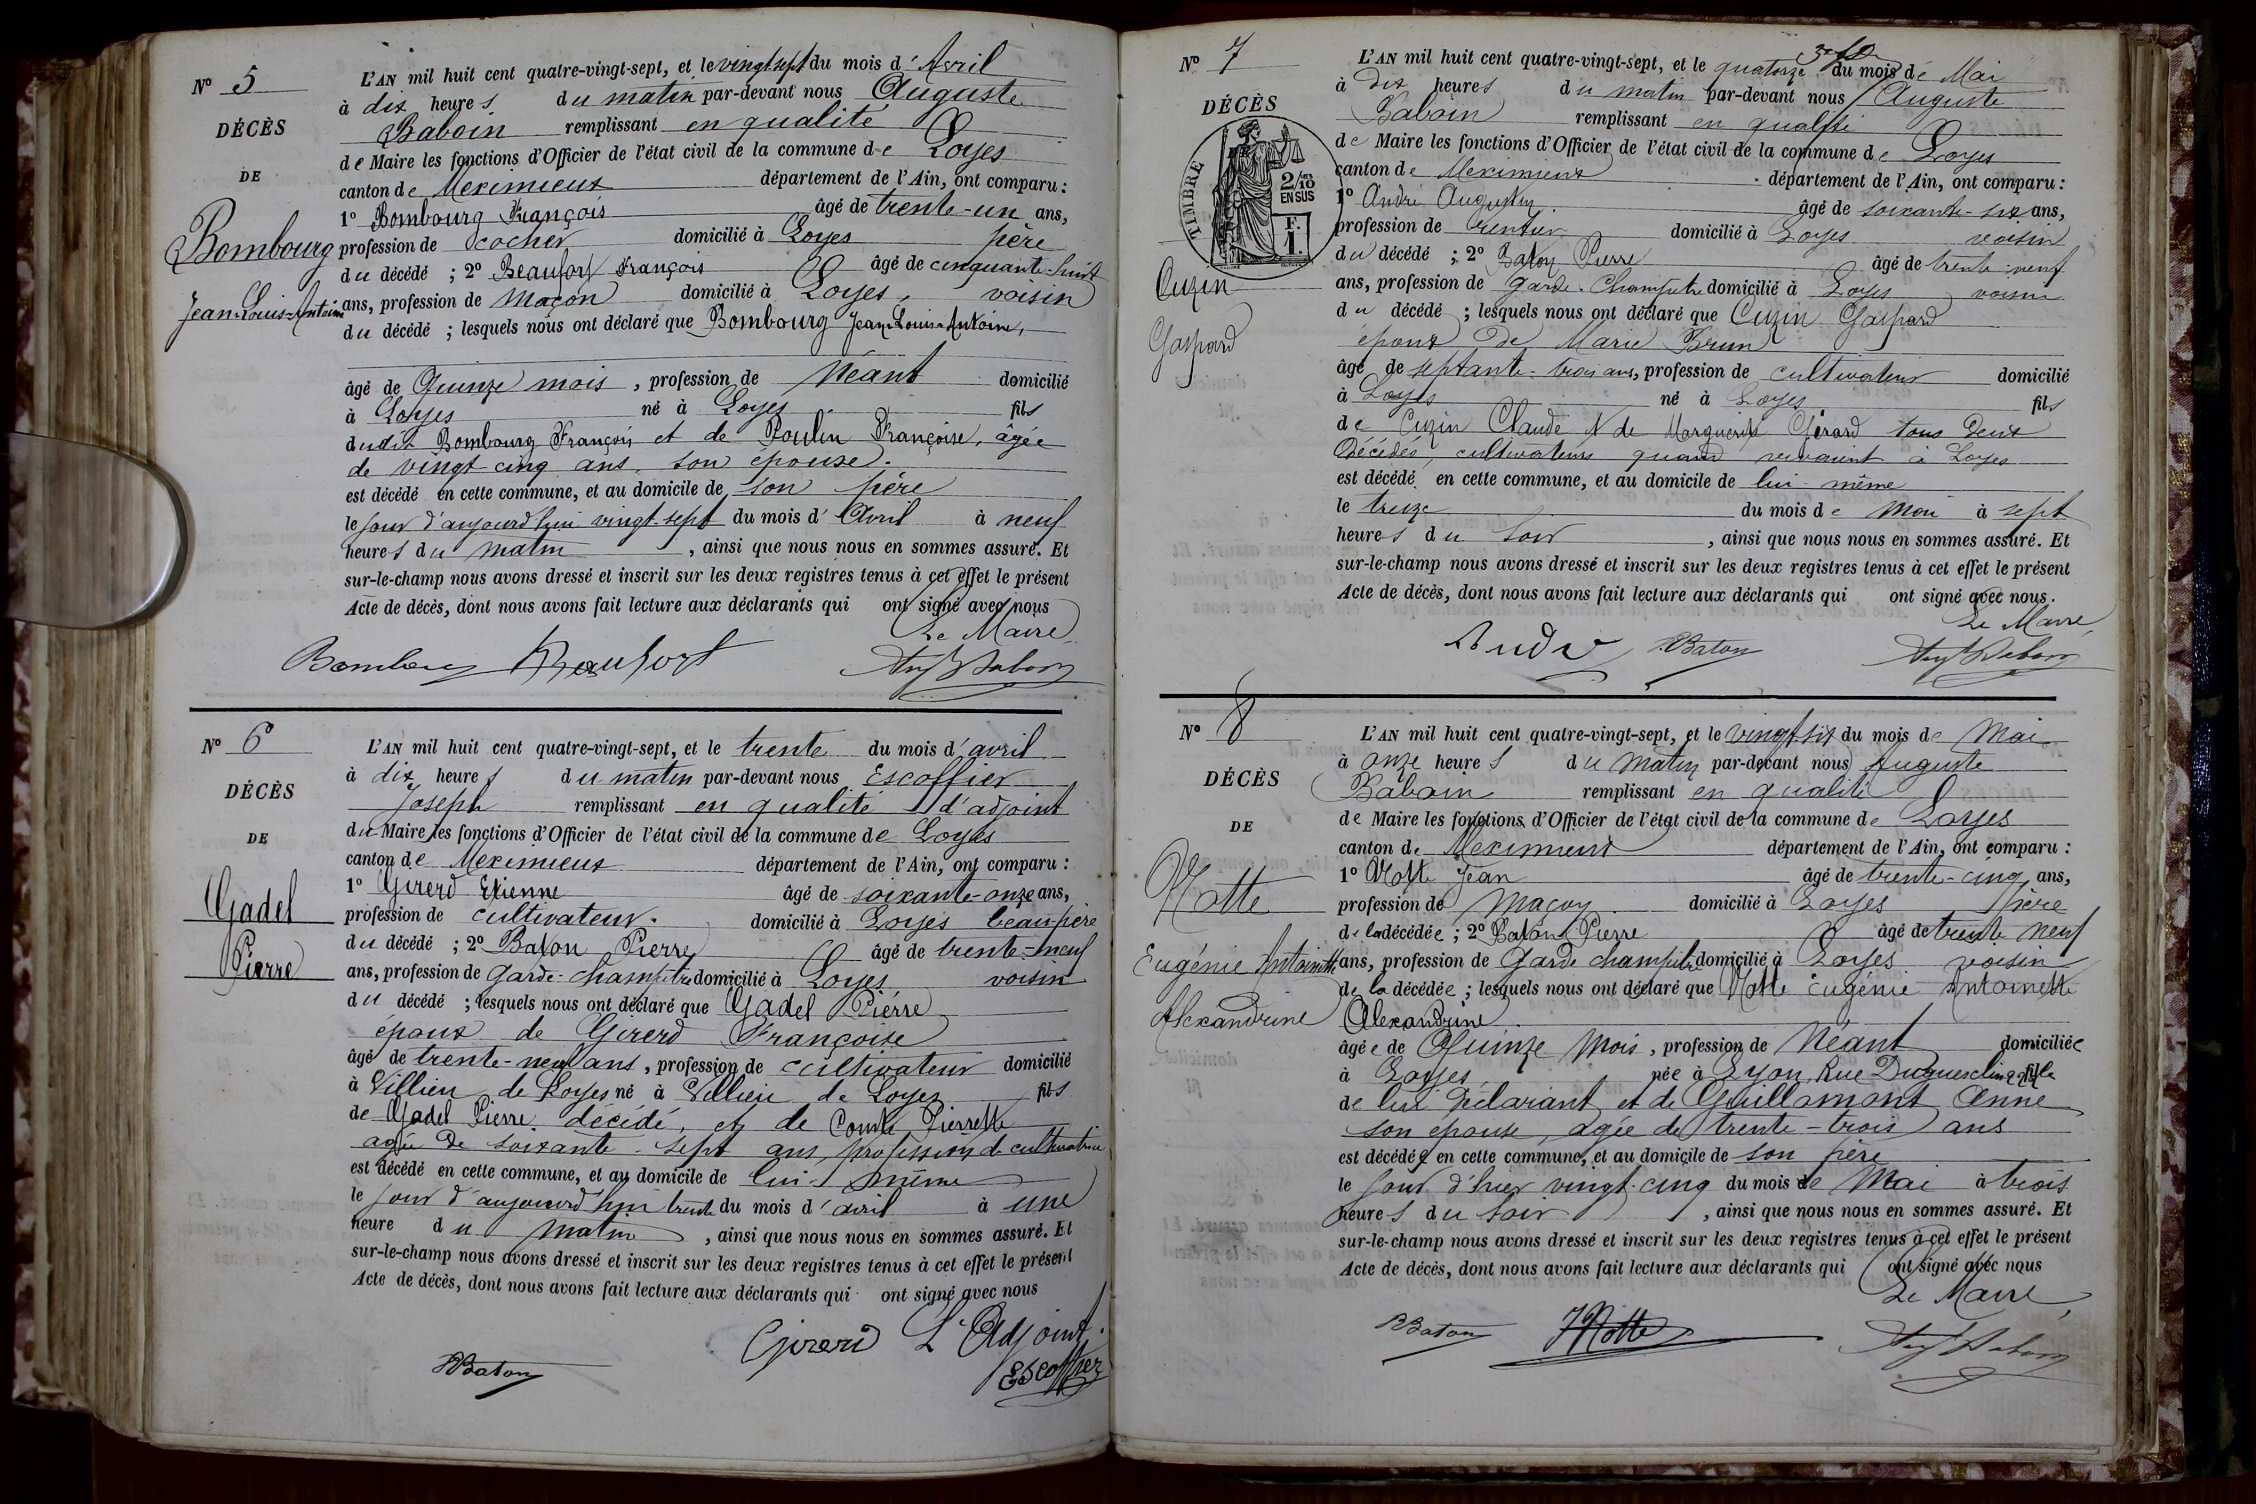 N° 5
DÉCÈS
DE
Bombourg
Jean-Louis-Antoine
L'AN mil huit cent quatre-vingt-sept, et le vingt sept du mois d'Avril
à dix heures du matin par-devant nous Auguste
Baboin remplissant en qualité
de Maire les fonctions d'Officier de l'état civil de la commune de Loyes
canton de Meximieux département de l'Ain, ont comparu :
1° Bombourg François âgé de trente-un ans,
profession de cocher domicilié à Loyes père
du décédé ; 2° Beaufort François âgé de cinquante-huit
ans, profession de maçon domicilié à Loyes, voisin
du décédé ; lesquels nous ont déclaré que Bombourg Jean-Louis-Antoine,
âgé de Quinze mois, profession de Néant domicilié
à Loyes né à Loyes fils
dudit Bombourg François et de Poulin Françoise, âgée
de vingt cinq ans, son épouse.
est décédé en cette commune, et au domicile de son père
le jour d'aujourd'hui vingt-sept du mois d'Avril à neuf
heures du matin, ainsi que nous nous en sommes assuré. Et
sur-le-champ nous avons dressé et inscrit sur les deux registres tenus à cet effet le présent
Acte de décès, dont nous avons fait lecture aux déclarants qui ont signé avec nous
Le Maire
Beaufort
N° 6
DÉCÈS
DE
Gadel
Pierre
L'AN mil huit cent quatre-vingt-sept, et le trente du mois d'avril
à dix heures du matin par-devant nous Escoffier
Joseph remplissant en qualité d'adjoint
du Maire les fonctions d'Officier de l'état civil de la commune de Loyes
canton de Meximieux département de l'Ain, ont comparu :
1° Girerd Etienne âgé de soixante-onze ans,
profession de cultivateur. domicilié à Loyes beau-père
du décédé ; 2° Baton Pierre âgé de trente-neuf
ans, profession de garde-champêtre domicilié à Loyes, voisin
du décédé ; lesquels nous ont déclaré que Gadel Pierre
époux de Girerd Françoise
âgé de trente-neuf ans, profession de cultivateur domicilié
à Villieu de Loyes né à Villieu de Loyes fils
de Gadel Pierre décédé, et de Comte Pierrette
agée de soixante-sept ans, profession de cultivatrice
est décédé en cette commune, et au domicile de lui-même
le jour d'aujourd'hui trente du mois d'avril à une
heure du matin, ainsi que nous nous en sommes assuré. Et
sur-le-champ nous avons dressé et inscrit sur les deux registres tenus à cet effet le présent
Acte de décès, dont nous avons fait lecture aux déclarants qui ont signé avec nous
Girerd L'Adjoint
Baton Escoffier
N° 7
DÉCÈS
TIMBRE
2/10 EN SUS
F. 1.
Cuzin
Gaspard
L'AN mil huit cent quatre-vingt-sept, et le quatorze du mois de Mai
à dix heures du matin par-devant nous Auguste
Baboin remplissant en qualité
de Maire les fonctions d'Officier de l'état civil de la commune de Loyes
canton de Meximieux département de l'Ain, ont comparu :
1° André Augustin âgé de soixante-six ans,
profession de rentier domicilié à Loyes voisin
du décédé ; 2° Baton Pierre âgé de trente-neuf
ans, profession de garde-champêtre domicilié à Loyes voisin
du décédé ; lesquels nous ont déclaré que Cuzin Gaspard
époux de Marie Brun
âgé de septante-trois ans, profession de cultivateur domicilié
à Loyes né à Loyes fils
de Cuzin Claude & de Marguerite Gérard tous deux
décédés, cultivateurs quand vivaient à Loyes
est décédé en cette commune, et au domicile de lui-même
le treize du mois de Mai à sept
heures du soir, ainsi que nous nous en sommes assuré. Et
sur-le-champ nous avons dressé et inscrit sur les deux registres tenus à cet effet le présent
Acte de décès, dont nous avons fait lecture aux déclarants qui ont signé avec nous.
Le Maire
André Baton
N° 8
DÉCÈS
DE
Motte
Eugénie Antoinette
Alexandrine
L'AN mil huit cent quatre-vingt-sept, et le vingt-six du mois de Mai
à onze heures du matin par-devant nous Auguste
Baboin remplissant en qualité
de Maire les fonctions d'Officier de l'état civil de la commune de Loyes
canton de Meximieux département de l'Ain, ont comparu :
1° Motte Jean âgé de trente-cinq ans,
profession de maçon domicilié à Loyes père
de la décédée ; 2° Baton Pierre âgé de trente neuf
ans, profession de garde champêtre domicilié à Loyes voisin
de la décédée ; lesquels nous ont déclaré que Motte Eugénie Antoinette
Alexandrine
âgée de Quinze mois, profession de Néant domiciliée
à Loyes née à Lyon, Rue Duguesclin fille
de lui déclarant et de Guillamont Anne
son épouse, agée de trente-trois ans
est décédée en cette commune, et au domicile de son père
le jour d'hier vingt-cinq du mois de Mai à trois
heures du soir, ainsi que nous nous en sommes assuré. Et
sur-le-champ nous avons dressé et inscrit sur les deux registres tenus à cet effet le présent
Acte de décès, dont nous avons fait lecture aux déclarants qui ont signé avec nous
Le Maire,
Baton JMotte